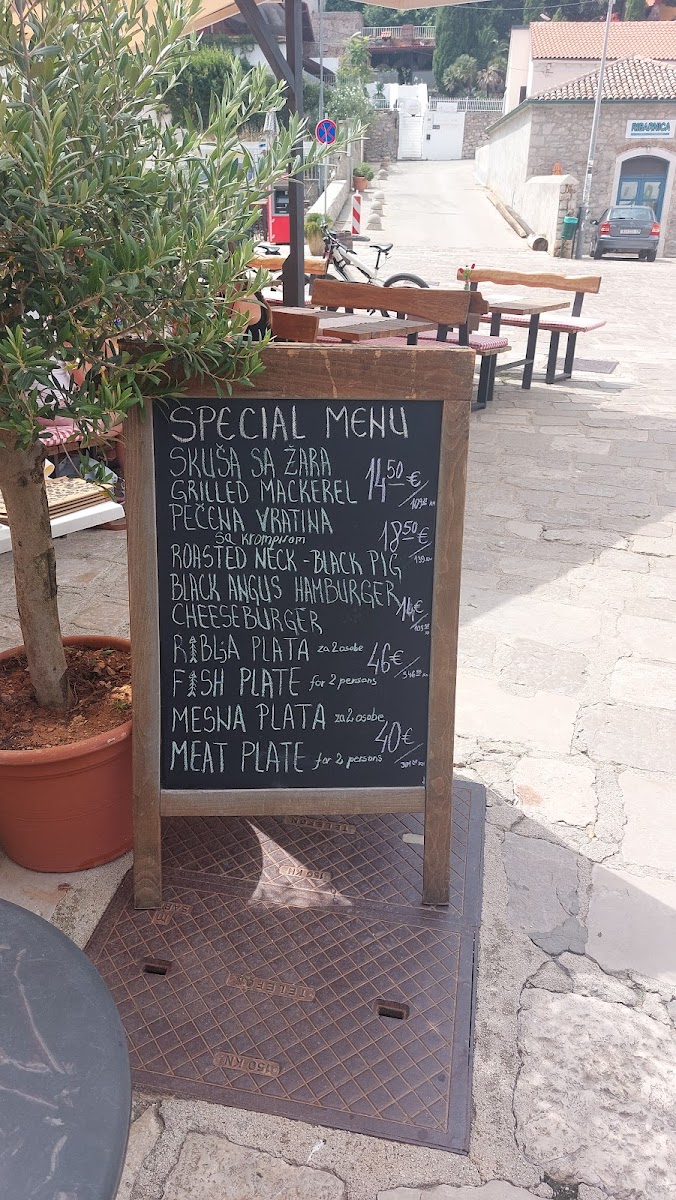 RIBARNICA
SPECIAL MENU
SKUŠA SA ŽARA
GRILLED MACKEREL 14⁵⁰ €
PEČENA VRATINA
sa krompirom 18⁵⁰ €
ROASTED NECK - BLACK PIG
BLACK ANGUS HAMBURGER
CHEESEBURGER 14 €
RIBLJA PLATA za 2 osobe
46 €
FISH PLATE for 2 persons
MESNA PLATA za 2 osobe
40 €
MEAT PLATE for 2 persons
TELEFON
150 KN
TELEFON
150 KN